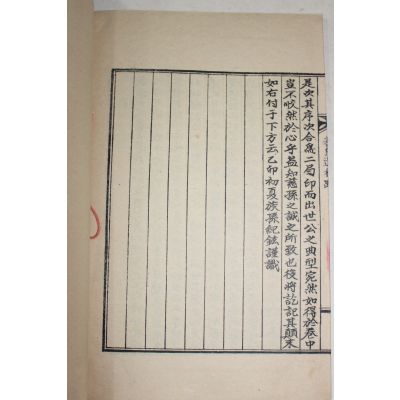 是次其序次合爲二局印而出世公之典型宛然如得於卷中
豈不咬然於心乎益知慈孫之誠之所致也後將訖記其顚末
如右付于下方云乙卯初夏族孫紀鉉謹識